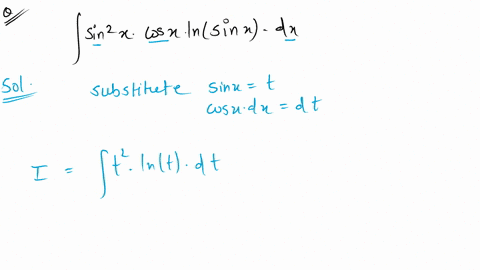 Q
∫ sin²x · cosx · ln(sinx) · dx
Sol.
substitute sinx = t
cosx · dx = dt
I = ∫ t² · ln(t) · dt